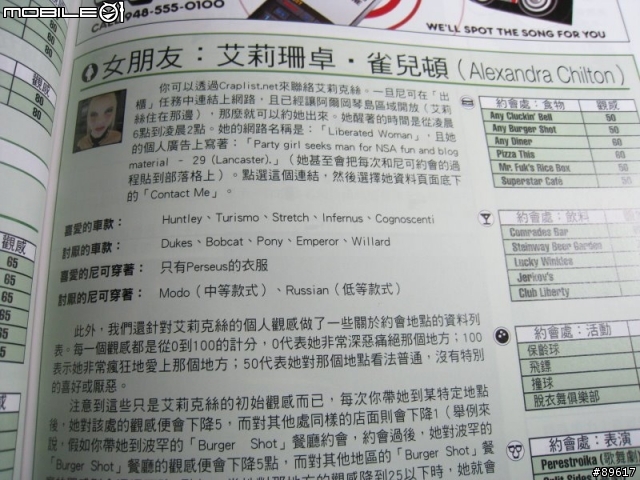 MOBILE01
948-555-0100
WE'LL SPOT THE SONG FOR YOU
女朋友：艾莉珊卓·雀兒頓（Alexandra Chilton）
你可以透過Craplist.net來聯絡艾莉克絲。一旦尼可在「出
櫃」任務中連結上網路，且已經讓阿爾岡琴島區域開放（艾莉
絲住在那邊），那麼就可以約她出來。她醒著的時間是從凌晨
6點到凌晨2點。她的網路名稱是：「Liberated Woman」，且她
的個人廣告上寫著：「Party girl seeks man for NSA fun and blog
material - 29 (Lancaster).」（她甚至會把每次和尼可約會的過
程貼到部落格上）。點選這個連結，然後選擇她資料頁面底下
的「Contact Me」。
喜愛的車款： Huntley、Turismo、Stretch、Infernus、Cognoscenti
討厭的車款： Dukes、Bobcat、Pony、Emperor、Willard
喜愛的尼可穿著： 只有Perseus的衣服
討厭的尼可穿著： Modo（中等款式）、Russian（低等款式）
此外，我們還針對艾莉克絲的個人觀感做了一些關於約會地點的資料列
表。每一個觀感都是從0到100的計分，0代表她非常深惡痛絕那個地方；100
表示她非常瘋狂地愛上那個地方；50代表她對那個地點看法普通，沒有特別
的喜好或厭惡。
注意到這些只是艾莉克絲的初始觀感而已，每次你帶她到某特定地點
後，她對該處的觀感便會下降5，而對其他處同樣的店面則會下降1（舉例來
說，假如你帶她到波罕的「Burger Shot」餐廳約會，約會過後，她對波罕的
「Burger Shot」餐廳的觀感便會下降5點，而對其他地區的「Burger Shot」餐
約會處：食物 觀感
Any Cluckin' Bell 50
Any Burger Shot 50
Any Diner 60
Pizza This 60
Mr. Fuk's Rice Box 50
Superstar Café
約會處：飲料 觀感
Comrades Bar
Steinway Beer Garden
Lucky Winkles
Jerkov's
Club Liberty
約會處：活動
保齡球
飛鏢
撞球
脫衣舞俱樂部
約會處：表演
Perestroika（歌舞劇
觀感
65
65
65
65
65
#89617